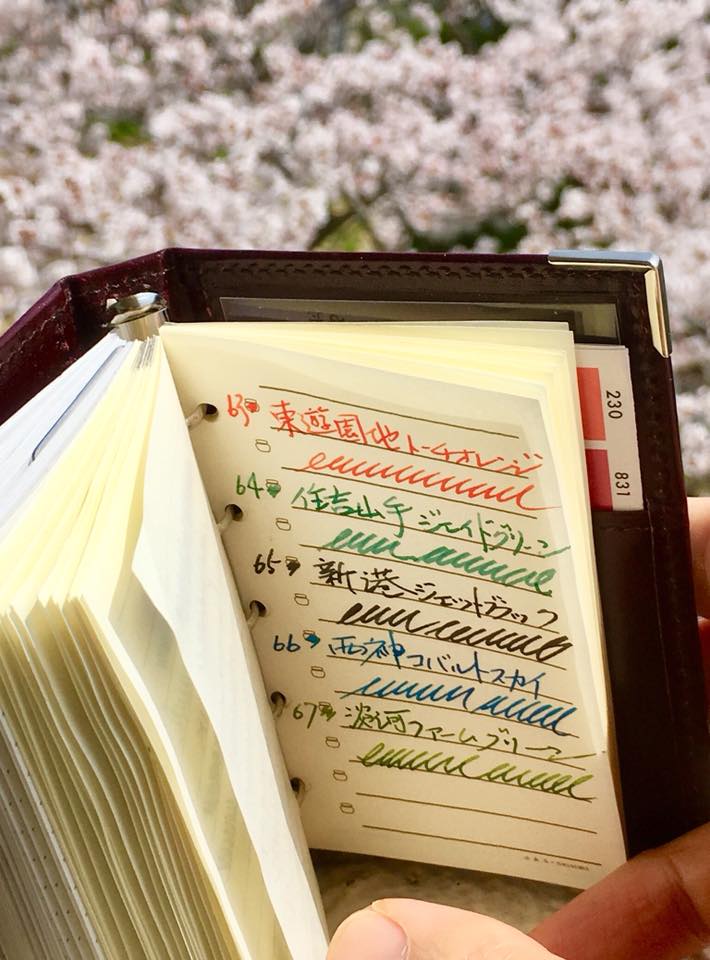 63 東遊園地トーチオレンジ
64 住吉山手ジェイドグリーン
65 新港ジェットブラック
66 西神コバルトスカイ
67 淡河ファームグリーン
230
831